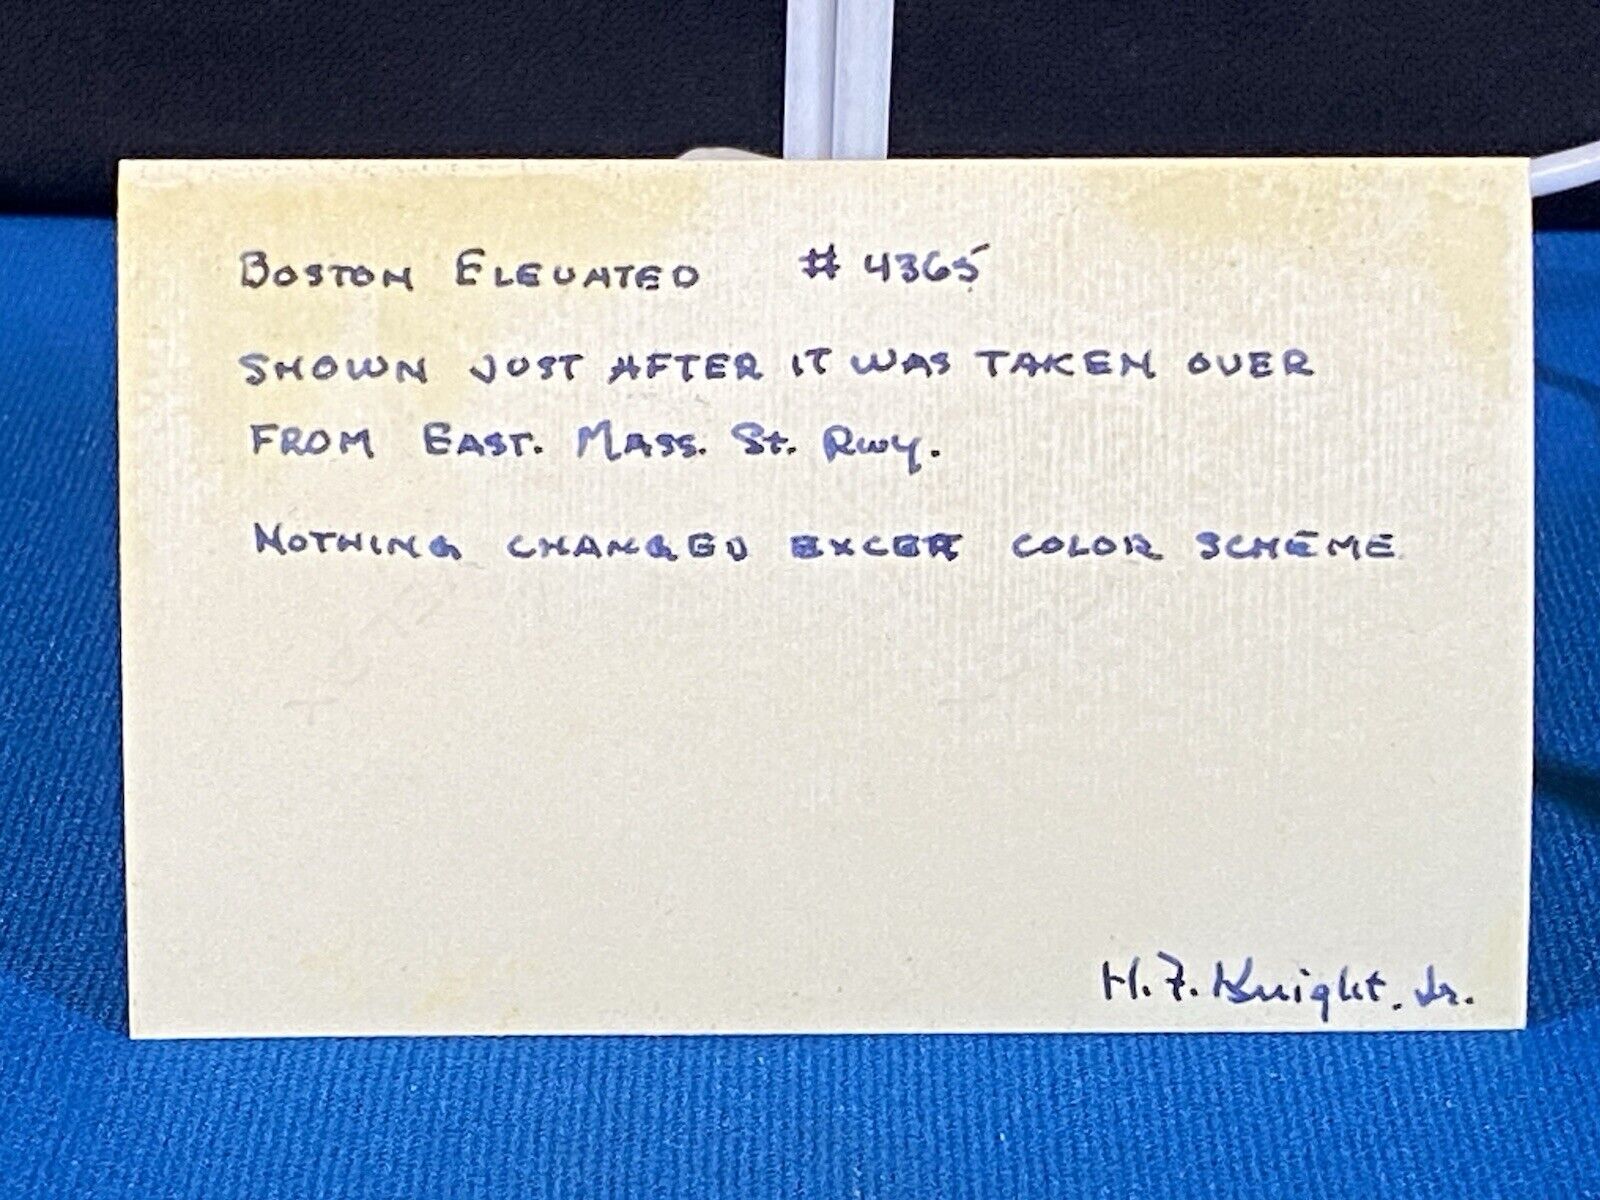 BOSTON ELEVATED # 4365
SHOWN JUST AFTER IT WAS TAKEN OVER
FROM EAST. MASS. St. Rwy.
NOTHING CHANGED EXCEPT COLOR SCHEME
H. F. Knight, Jr.